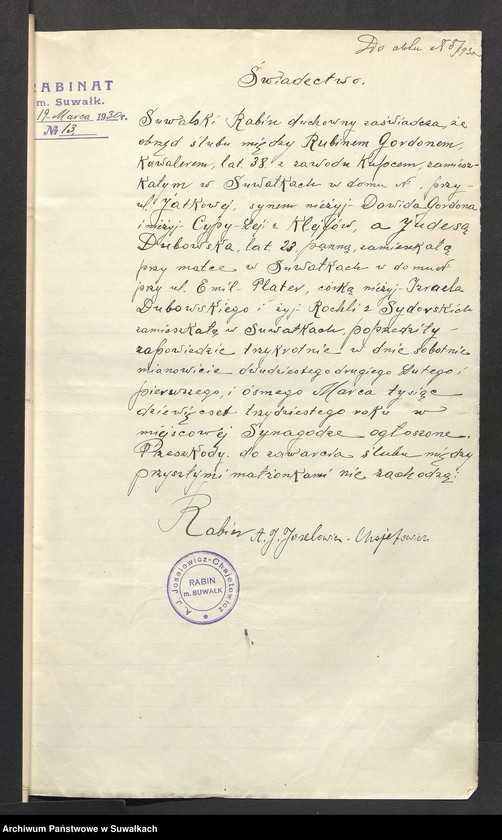 Do aktu N 5/930
RABINAT
m. Suwałk.
19 Marca 1930 r.
№ 13
Świadectwo.
Suwalski Rabin duchowny zaświadcza, że
obrzęd ślubu między Rubinem Gordonem,
kawalerem, lat 38, z zawodu kupcem, zamiesz-
kałym w Suwałkach w domu № - przy-
ul. Jatkowej, synem nieżyj- Dawida Gordona
i nieżyj- Cypy-Lei z Klejfów, a Judesą
Dubowską, lat 28 panną, zamieszkałą
przy matce w Suwałkach w domu №
przy ul. Emil- Plater, córką nieżyj- Izraela
Dubowskiego i żyj- Rochli z Sydorskich
zamieszkałą w Suwałkach, poprzedziły -
zapowiedzie trzykrotnie w dnie sobotnie
mianowicie dwudziestego drugiego Lutego i
pierwszego, i ósmego Marca tysiąc
dziewięćset trzydziestego roku w -
miejscowej Synagodze ogłoszone.
Przeszkody do zawarcia ślubu między
przyszłymi małżonkami nie zachodzą:
Rabin A. J. Joselowicz - Chajetowicz
A. J. Joselowicz-Chajetowicz
RABIN
m. SUWAŁK
Archiwum Państwowe w Suwałkach